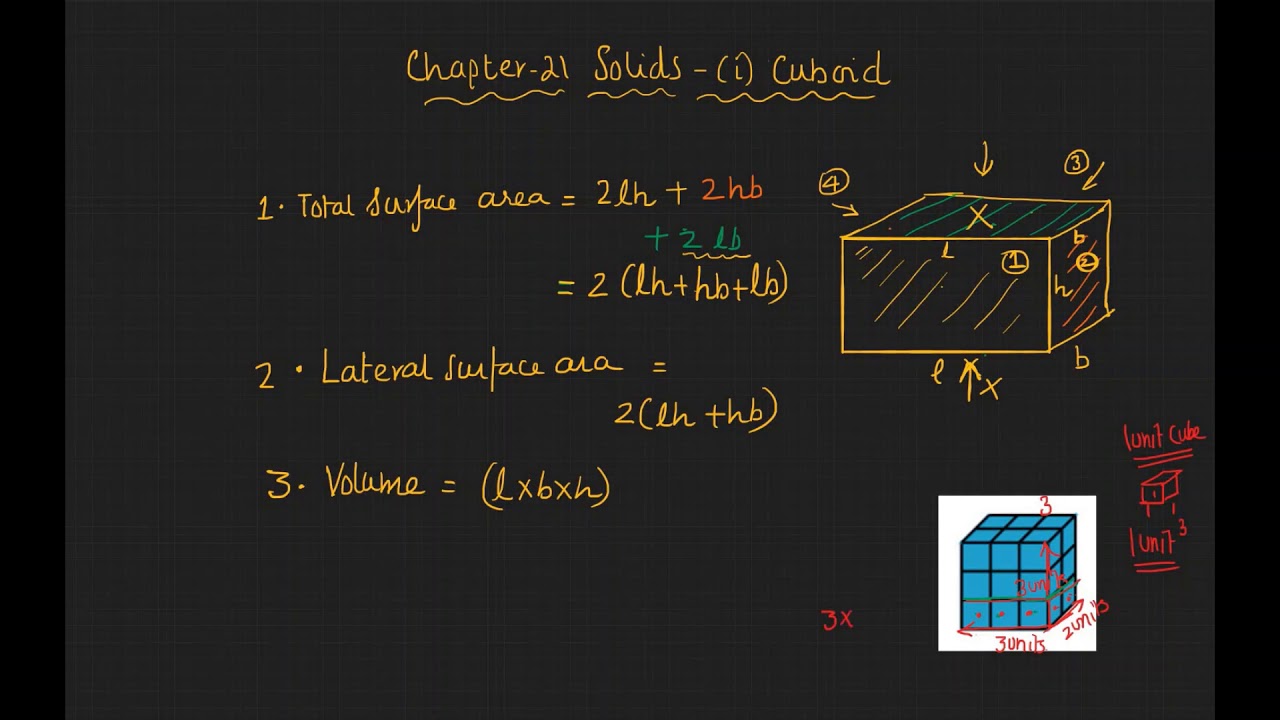 Chapter-21 Solids - (i) Cuboid
1. Total Surface area = 2lh + 2hb
+ 2 lb
= 2 (lh+hb+lb)
2. Lateral surface area =
2(lh +hb)
3. Volume = (l×b×h)
③
④
X
b
l
①
②
h
l
X
b
1unit Cube
1
1unit³
3
3units
2units
3units
3x